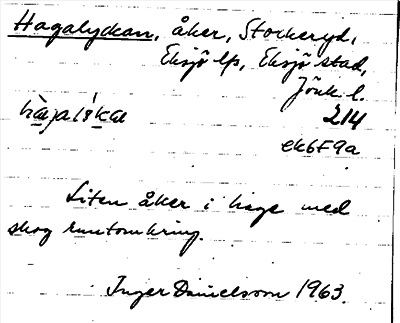 Hagalyckan, åker, Stockeryd,
Eksjö lfs, Eksjö stad,
Jönk. l.
214
ek6F9a
Liten åker i hage med
skog runtomkring.
Inger Danielsson 1963.